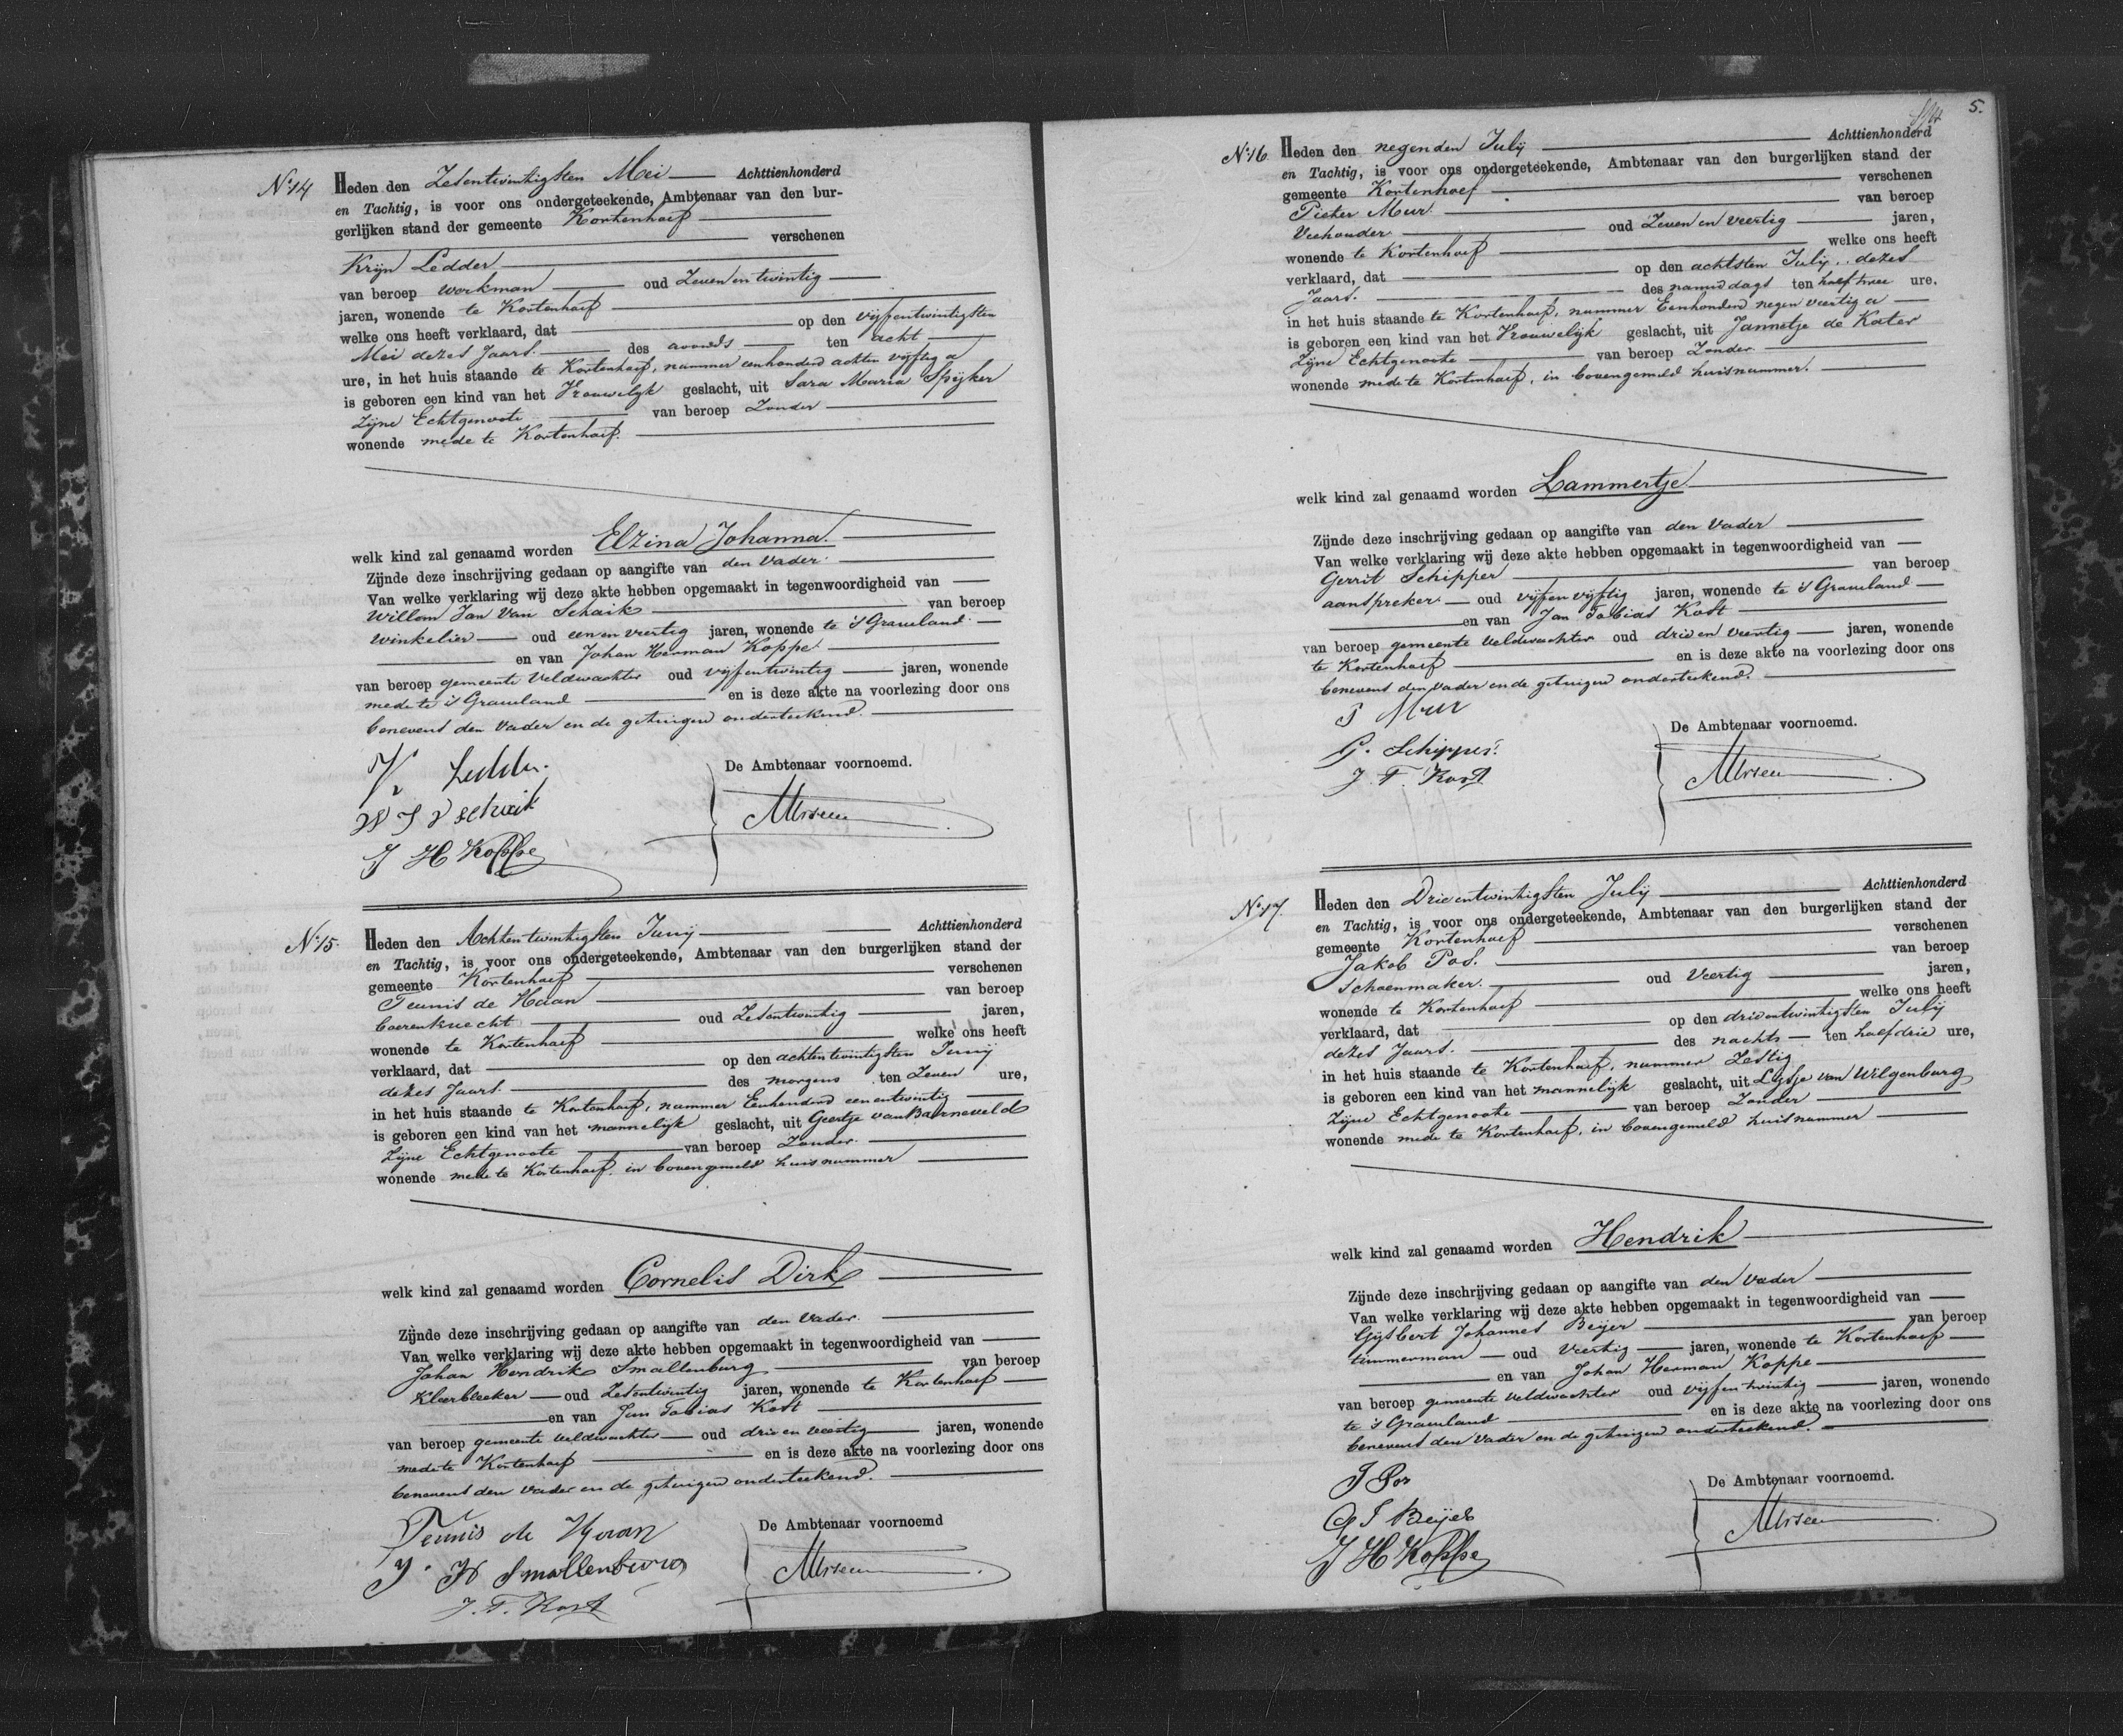 No. 14
Heden den Zesentwintigsten Mei Achttienhonderd
en Tachtig, is voor ons ondergeteekende, Ambtenaar van den bur-
gerlijken stand der gemeente Kortenhoef
verschenen
Krijn Ledder
van beroep workman oud Zeven en twintig
jaren, wonende te Kortenhoef
welke ons heeft verklaard, dat op den vijfentwintigsten
Mei dezes Jaars. des avonds ten acht
ure, in het huis staande te Kortenhoef, nummer eenhonderd achten vijftig a
is geboren een kind van het Vrouwelijk geslacht, uit Sara Maria Spijker
Zijne Echtgenoote van beroep Zonder
wonende mede te Kortenhoef.
welk kind zal genaamd worden Elzina Johanna.
Zijnde deze inschrijving gedaan op aangifte van den Vader.
Van welke verklaring wij deze akte hebben opgemaakt in tegenwoordigheid van
Willem Jan Van Schaik van beroep
Winkelier oud een en veertig jaren, wonende te 's Graveland
en van Johan Herman Koppe
van beroep gemeente Veldwachter oud vijfentwintig jaren, wonende
mede te 's Graveland en is deze akte na voorlezing door ons
benevens den Vader en de getuigen onderteekend.
K Ledder.
W J v schaik
J H Koppe
De Ambtenaar voornoemd.
No. 15.
Heden den Achtentwintigsten Junij Achttienhonderd
en Tachtig, is voor ons ondergeteekende, Ambtenaar van den burgerlijken stand der
gemeente Kortenhoef verschenen
Teunis de Haan van beroep
boerenknecht oud Zesentwintig jaren,
wonende te Kortenhoef welke ons heeft
verklaard, dat op den achtentwintigsten Junij
dezes Jaars. des morgens ten Zeven ure,
in het huis staande te Kortenhoef, nummer Eenhonderd eenentwintig
is geboren een kind van het mannelijk geslacht, uit Geertje van Barneveld
Zijne Echtgenoote van beroep Zonder.
wonende mede te Kortenhoef. in bovengemeld huisnummer
welk kind zal genaamd worden Cornelis Dirk
Zijnde deze inschrijving gedaan op aangifte van den Vader.
Van welke verklaring wij deze akte hebben opgemaakt in tegenwoordigheid van
Johan Hendrik Smallenburg van beroep
Kleerbleeker oud Zesentwintig jaren, wonende te Kortenhoef
en van Jan Tobias Kost
van beroep gemeente Veldwachter oud drie en veertig jaren, wonende
mede te Kortenhoef en is deze akte na voorlezing door ons
benevens den Vader en de getuigen onderteekend.
Teunis de Haan
J. H Smallenburg
J. T. Kost
De Ambtenaar voornoemd
5.
No. 16
Heden den negenden Julij Achttienhonderd
en Tachtig, is voor ons ondergeteekende, Ambtenaar van den burgerlijken stand der
gemeente Kortenhoef verschenen
Pieter Mur. van beroep
Veehouder oud Zeven en veertig jaren,
wonende te Kortenhoef welke ons heeft
verklaard, dat op den achtsten Julij dezes
Jaars. des namiddags ten half twee ure.
in het huis staande te Kortenhoef, nummer Eenhonderd negen veertig a
is geboren een kind van het Vrouwelijk geslacht, uit Jannetje de Kater
Zijne Echtgenoote van beroep Zonder
wonende mede te Kortenhoef, in bovengemeld huisnummer.
welk kind zal genaamd worden Lammertje
Zijnde deze inschrijving gedaan op aangifte van den Vader
Van welke verklaring wij deze akte hebben opgemaakt in tegenwoordigheid van
Gerrit Schipper van beroep
aanspreker oud vijfen vijftig jaren, wonende te 's Graveland
en van Jan Tobias Kost
van beroep gemeente Veldwachter oud drie en veertig jaren, wonende
te Kortenhoef en is deze akte na voorlezing door ons
benevens den Vader en de getuigen onderteekend.
P Mur
G. Schipper.
J. T. Kost
De Ambtenaar voornoemd.
No. 17.
Heden den Drieentwintigsten Julij Achttienhonderd
en Tachtig, is voor ons ondergeteekende, Ambtenaar van den burgerlijken stand der
gemeente Kortenhoef verschenen
Jakob Pos. van beroep
Schoenmaker. oud Veertig jaren,
wonende te Kortenhoef welke ons heeft
verklaard, dat op den drieentwintigsten Julij
dezes Jaars. des nachts ten half drie ure,
in het huis staande te Kortenhoef, nummer Zestig
is geboren een kind van het mannelijk geslacht, uit Lijsje van Wilgenburg
Zijne Echtgenoote van beroep Zonder
wonende mede te Kortenhoef, in bovengemeld huisnummer
welk kind zal genaamd worden Hendrik
Zijnde deze inschrijving gedaan op aangifte van den Vader
Van welke verklaring wij deze akte hebben opgemaakt in tegenwoordigheid van
Gijsbert Johannes Beijer van beroep
timmerman oud Veertig jaren, wonende te Kortenhoef
en van Johan Herman Koppe
van beroep gemeente Veldwachter oud vijfen twintig jaren, wonende
te 's Graveland en is deze akte na voorlezing door ons
benevens den Vader en de getuigen onderteekend.
J Pos
G J Beijer
J H Koppe
De Ambtenaar voornoemd.